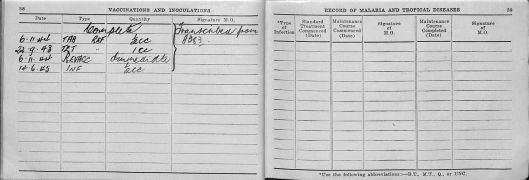 58
VACCINATIONS AND INOCULATIONS
Date Type Quantity Signature M.O.
Complete Transcribed from
TAB
22.9.43 TXT " 1cc
6.11. REVACC Immediate
INF
RECORD OF MALARIA AND TROPICAL DISEASES
59
*Type of Infection
Standard Treatment Commenced (Date)
Maintenance Course Commenced (Date)
Signature of M.O.
Maintenance Course Completed (Date)
Signature of M.O.
*Use the following abbreviations:—B.T., M.T., Q., or UNC.